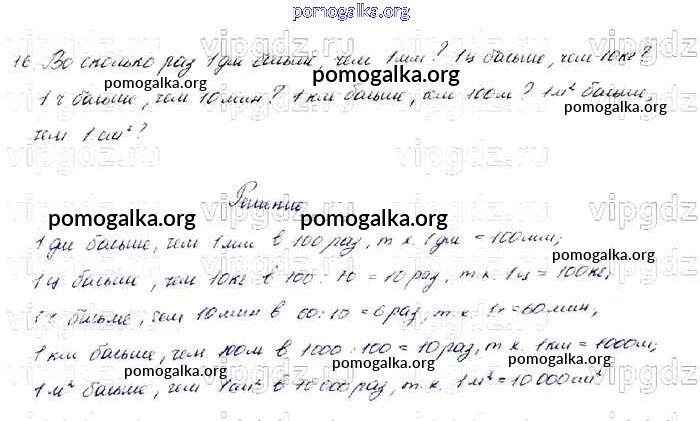 pomogalka.org
16. Во сколько раз 1 дм больше, чем 1 мм? 1 ц больше, чем 10 кг?
pomogalka.org pomogalka.org
1 ч больше, чем 10 мин? 1 км больше, чем 100 м? 1 м² больше,
pomogalka.org
чем 1 см²?
vipgdz.ru
Решение
pomogalka.org pomogalka.org
1 дм больше, чем 1 мм в 100 раз, т.к. 1 дм = 100 мм;
1 ц больше, чем 10 кг в 100 : 10 = 10 раз, т.к. 1 ц = 100 кг,
pomogalka.org pomogalka.org
1 ч больше, чем 10 мин в 60 : 10 = 6 раз, т.к. 1 ч = 60 мин,
1 км больше, чем 100 м в 1000 : 100 = 10 раз, т.к. 1 км = 1000 м;
pomogalka.org pomogalka.org
1 м² больше, чем 1 см² в 10 000 раз, т.к. 1 м² = 10 000 см²